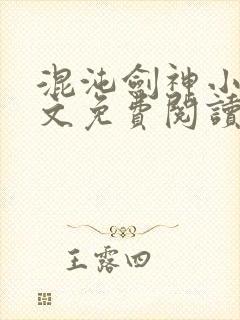 混沌劍神小
文免費閱讀
王露四